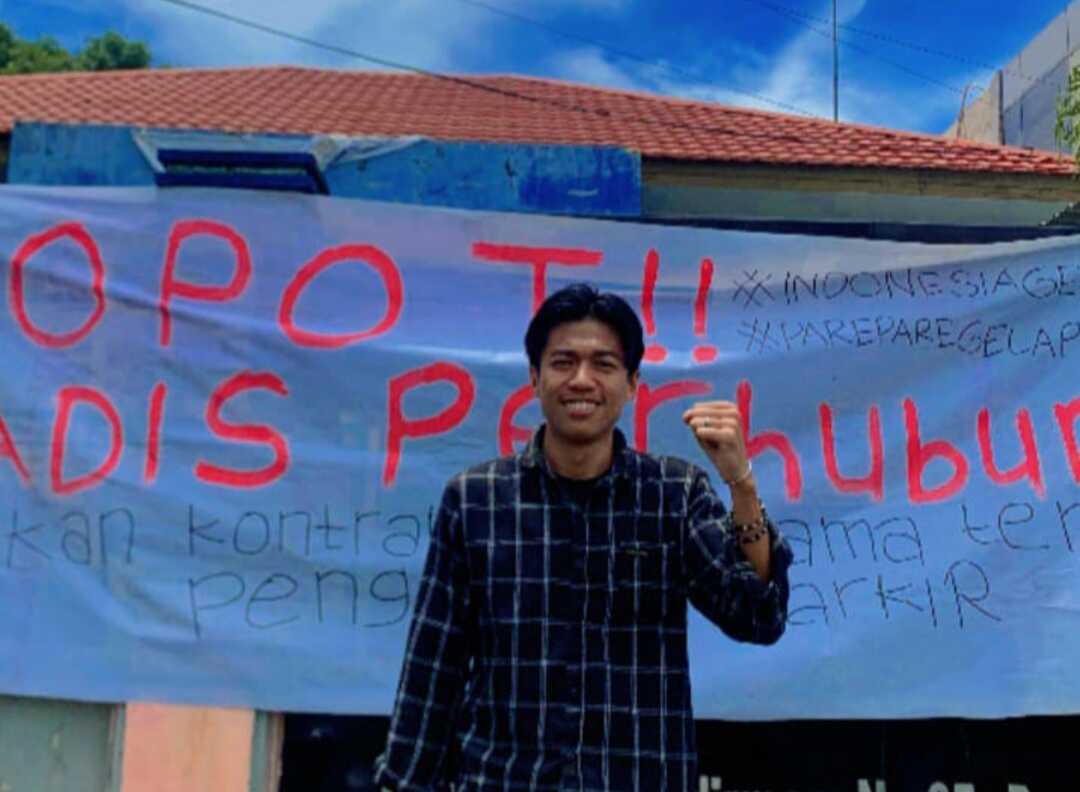 OPOT!!
#INDONESIAGE
#PAREPAREGELAP
ADIS Perhubun
kan kontra ama ter
peng arkIR